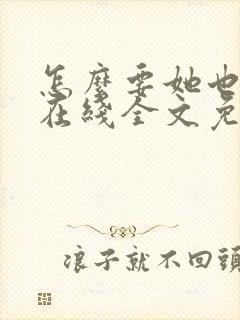 怎麼要她也
在綫全文免
浪子就不回頭